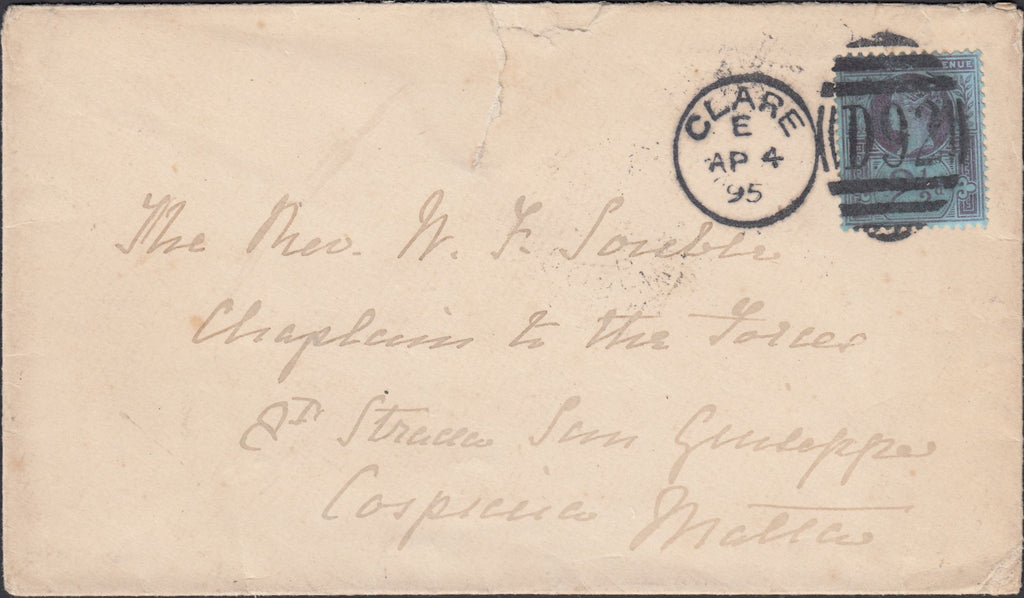 CLARE
E
AP 4
95
D92
ENUE
2½d
The Rev. W. F.
Chaplain to the Forces
Strada San Giuseppe
Cospicua Malta